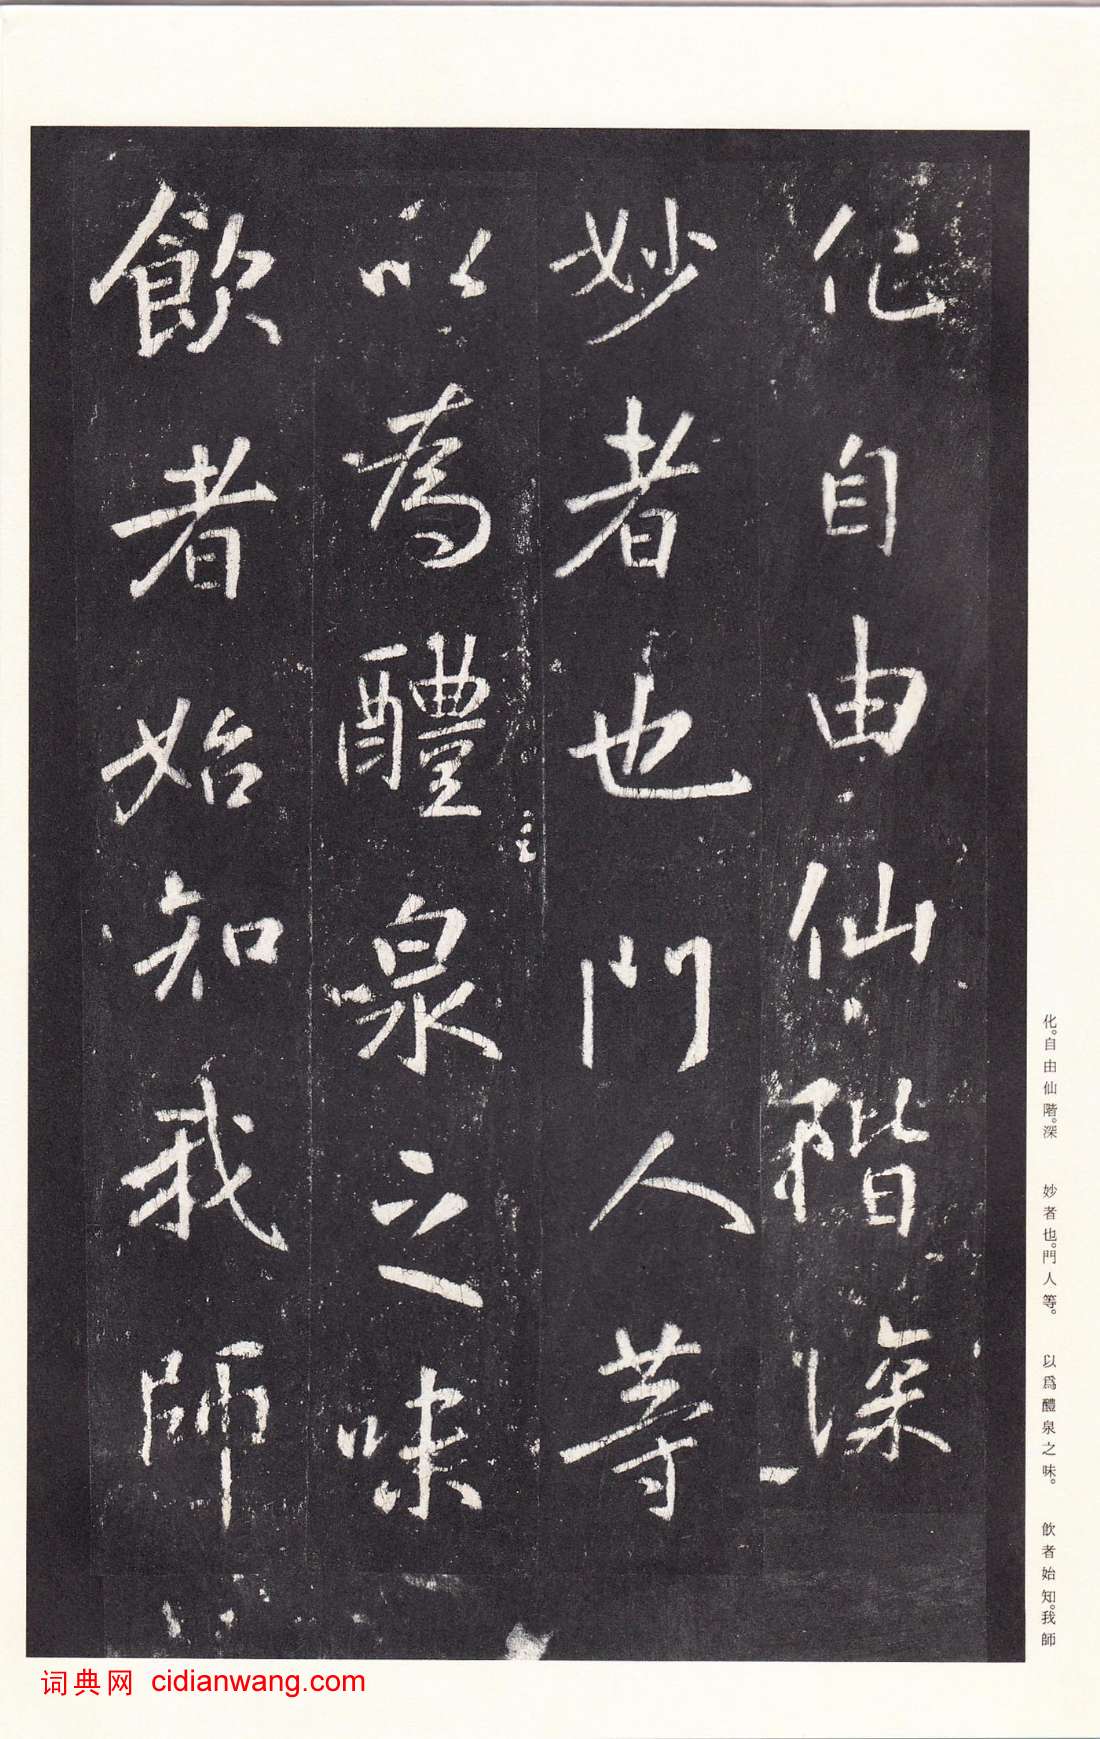 化自由仙階深
妙者也門人等
以為醴泉之味
飲者始知我師
化。自由仙階。深　妙者也。門人等。　以爲醴泉之味。　飲者始知。我師
词典网 cidianwang.com